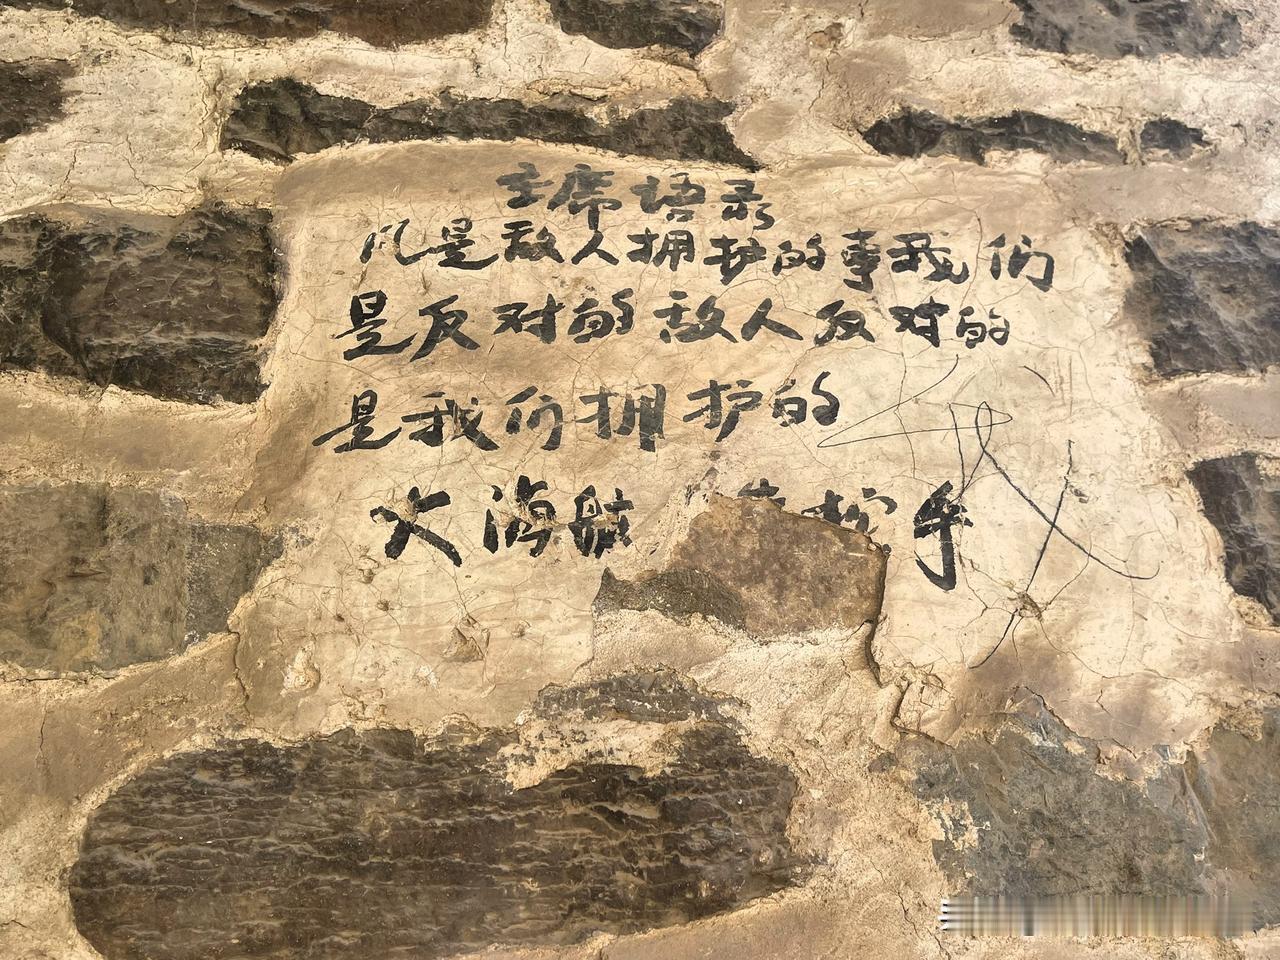 主席语录
凡是敌人拥护的事我们
是反对的敌人反对的
是我们拥护的
大海航 手